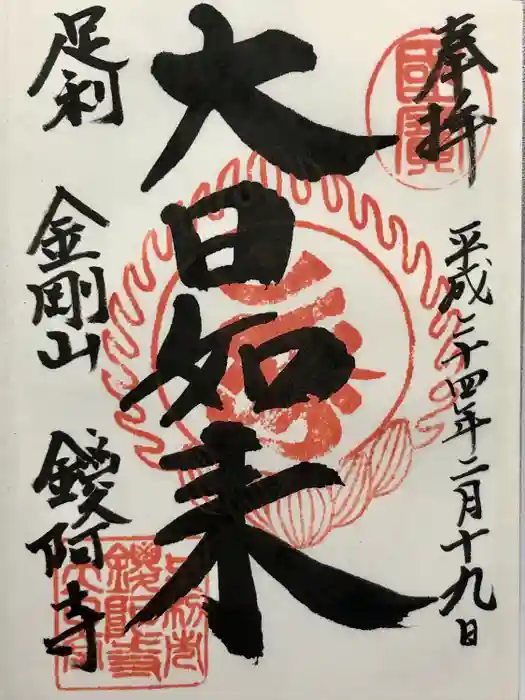 奉拝
平成二十四年二月十九日
大日如来
足利
金剛山
鑁阿寺
国寳